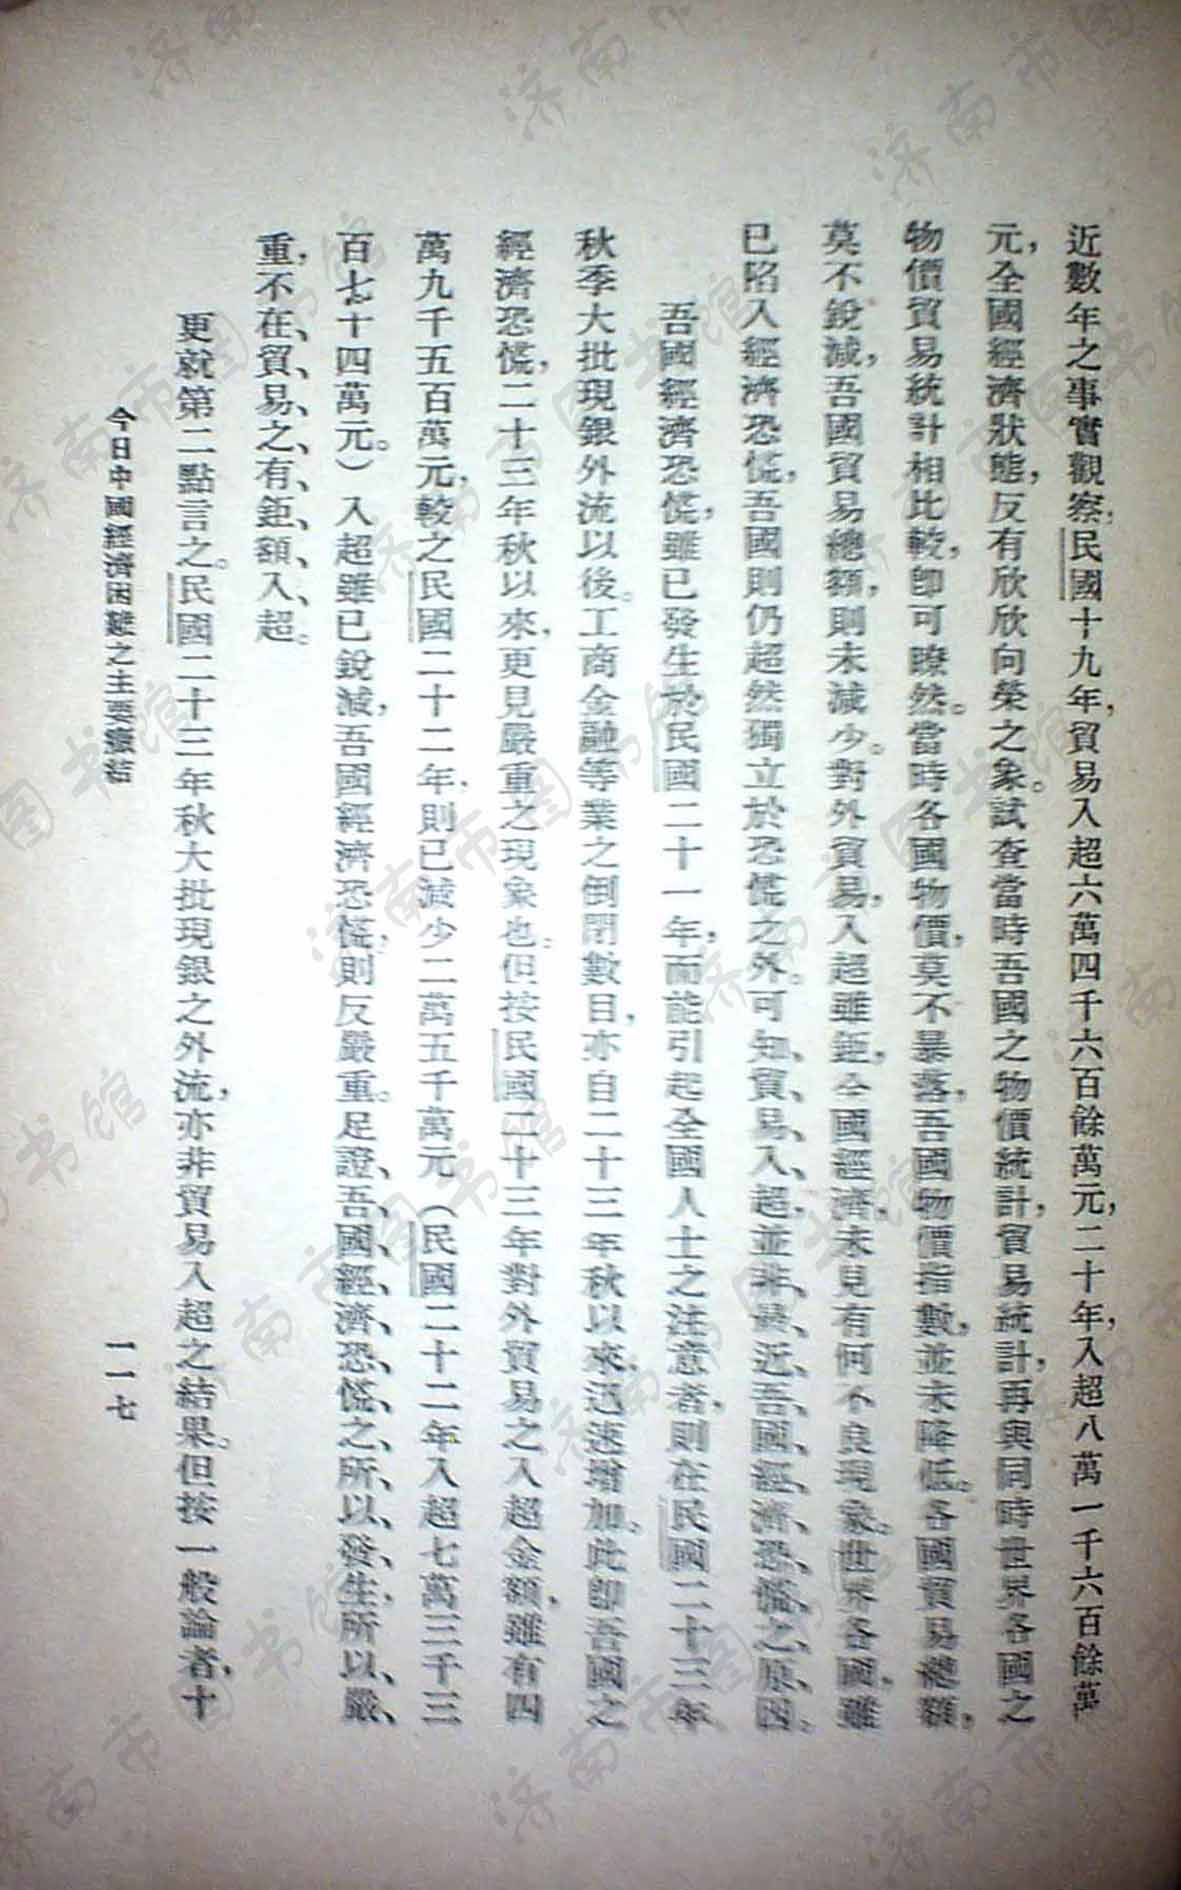 近數年之事實觀察，民國十九年，貿易入超六萬四千六百餘萬元，二十年，入超八萬一千六百餘萬
元，全國經濟狀態，反有欣欣向榮之象。試查當時吾國之物價統計，貿易統計，再與同時世界各國之
物價貿易統計相比較，即可瞭然。當時各國物價，莫不暴落，吾國物價指數，並未降低。各國貿易總額，
莫不銳減，吾國貿易總額，則未減少。對外貿易，入超雖鉅，全國經濟，未見有何不良現象。世界各國，雖
已陷入經濟恐慌，吾國則仍超然獨立於恐慌之外。可知、貿、易、入、超、並、非、最、近、吾、國、經、濟、恐、慌、之、原、因。
吾國經濟恐慌，雖已發生於民國二十一年，而能引起全國人士之注意者，則在民國二十三年
秋季大批現銀外流以後。工商金融等業之倒閉數目，亦自二十三年秋以來，迅速增加。此即吾國之
經濟恐慌，二十三年秋以來，更見嚴重之現象也。但按民國二十三年對外貿易之入超金額，雖有四
萬九千五百萬元，較之民國二十二年，則已減少二萬五千萬元（民國二十二年入超七萬三千三
百七十四萬元。）入超雖已銳減，吾國經濟恐慌，則反嚴重。足證、吾、國、經、濟、恐、慌、之、所、以、發、生、所、以、嚴、
重，不、在、貿、易、之、有、鉅、額、入、超。
更就第二點言之。民國二十三年秋大批現銀之外流，亦非貿易入超之結果。但按一般論者，十
今日中國經濟困難之主要癥結
一一七
济南市图书馆